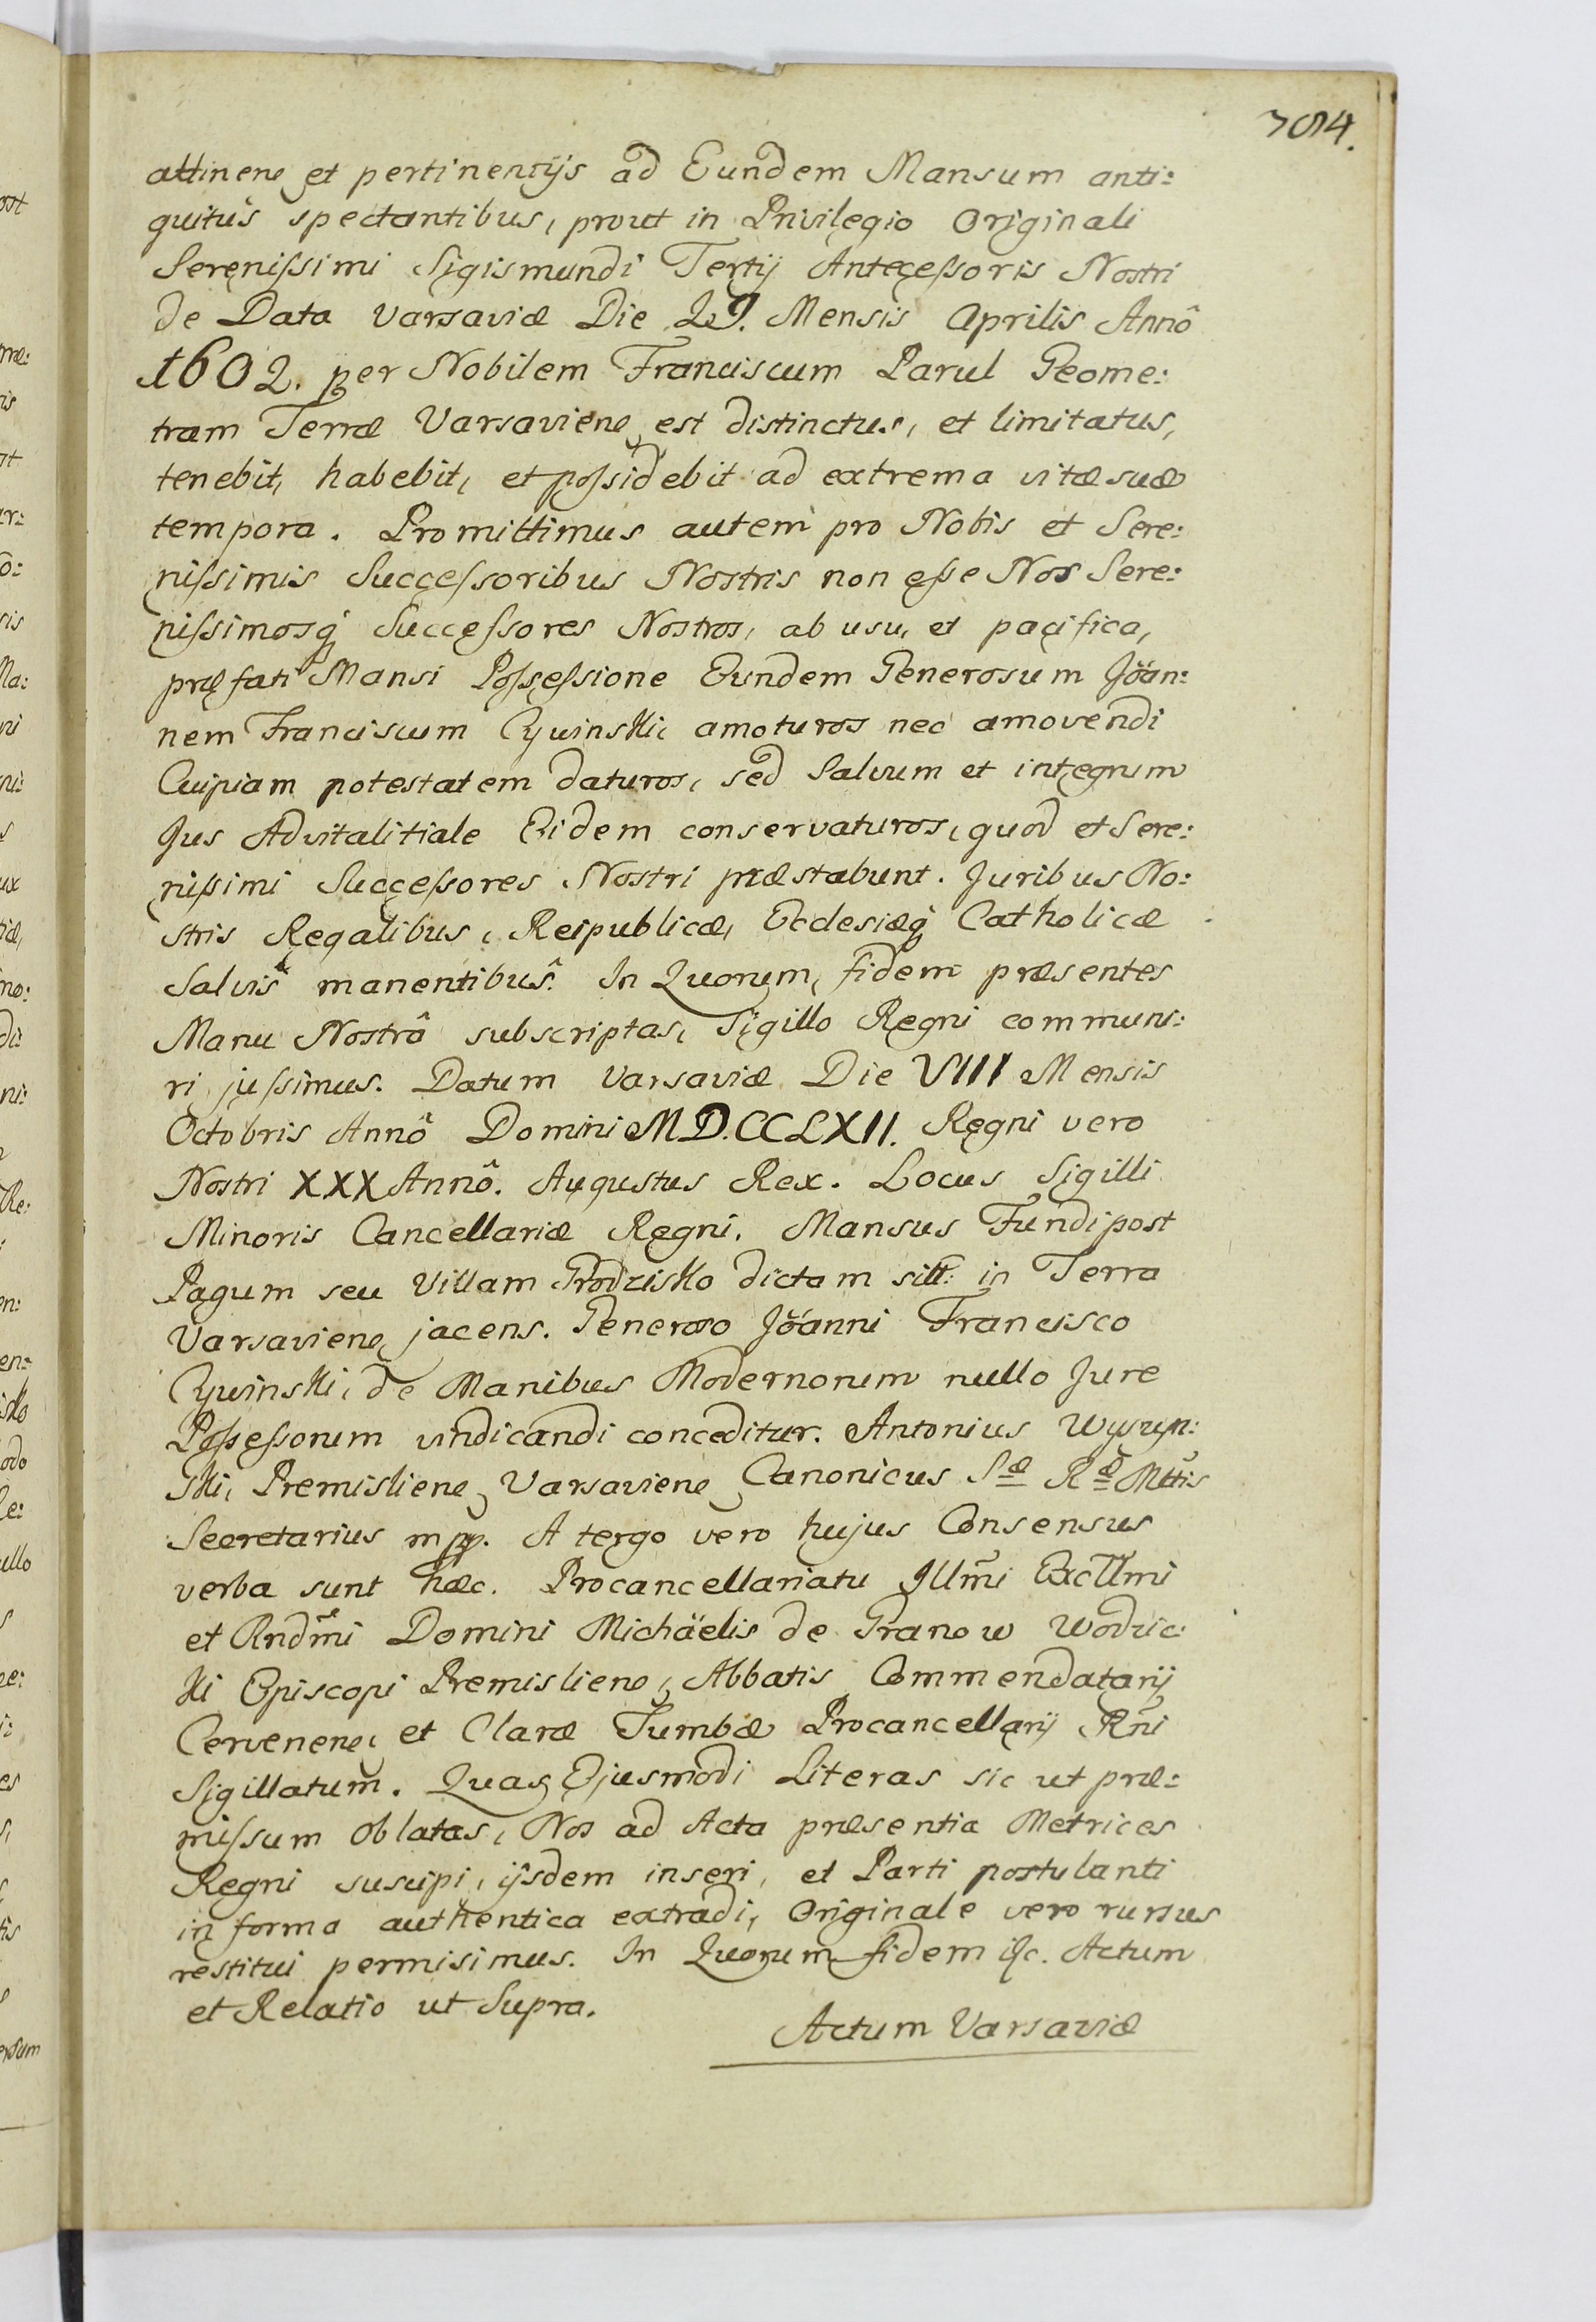 7014.
attinen et pertinentijs ad Eundem Mansum anti:
quitus spectantibus, prout in Privilegio Originali
Serenissimi Sigismundi Tertij Antecessoris Nostri
de Data Varsaviæ Die 29. Mensis Aprilis Annô
1602. per Nobilem Franciscum Parul Geome:
tram Terræ Varsavien est distinctus, et limitatus,
tenebit, habebit, et possidebit ad extrema vitæ suæ
tempora. Promittimus autem pro Nobis et Sere:
nissimis Successoribus Nostris non esse Nos Sere:
nissimosq Successores Nostros, ab usu, et pacifica,
præfati Mansi Possessione Eundem Generosum Jöan:
nem Franciscum Cywinski amoturos nec amovendi
Cuipiam potestatem daturos, sed Salvum et integrum
Jus Advitalitiale Eidem conservaturos, quod et Sere:
nissimi Successores Nostri præstabunt. Juribus No:
stris Regalibus, Reipublicæ, Ecclesiæq Catholicæ
Salvis manentibus. In Quorum, fidem præsentes
Manu Nostrâ subscriptas, Sigillo Regni communi:
ri jussimus. Datum Varsaviæ Die VIII Mensis
Octobris Annô Domini MD.CCLXII. Regni vero
Nostri XXX Annô. Augustus Rex. Locus Sigilli
Minoris Cancellariæ Regni. Mansus Fundi post
Pagum seu Villam Grodzisko dictam sitt: in Terra
Varsavien jacens. Generoso Jöanni Francisco
Cywinski, de Manibus Modernorum nullo Jure
Possessorum vindicandi conceditur. Antonius
ski, Premislien, Varsavien Canonicus Sæ Ræ Mttis
Secretarius mpp. A tergo vero hujus Consensus
verba sunt hæc. Procancellariatu Illmi Excllmi
et Rndmi Domini Michäelis de Granow Wodzic:
ki Episcopi Premislien, Abbatis Commendatarij
Cervenen, et Claræ Tumbæ Procancellarij Rni
Sigillatum. Quas Ejusmodi Literas sic ut præ:
missum oblatas, Nos ad Acta præsentia Metrices
Regni suscipi, ijsdem inseri, et Parti postulanti
in forma authentica extradi, Originale vero rursus
restitui permisimus. In Quorum fidem &c. Actum
et Relatio ut Supra.
Actum Varsaviæ